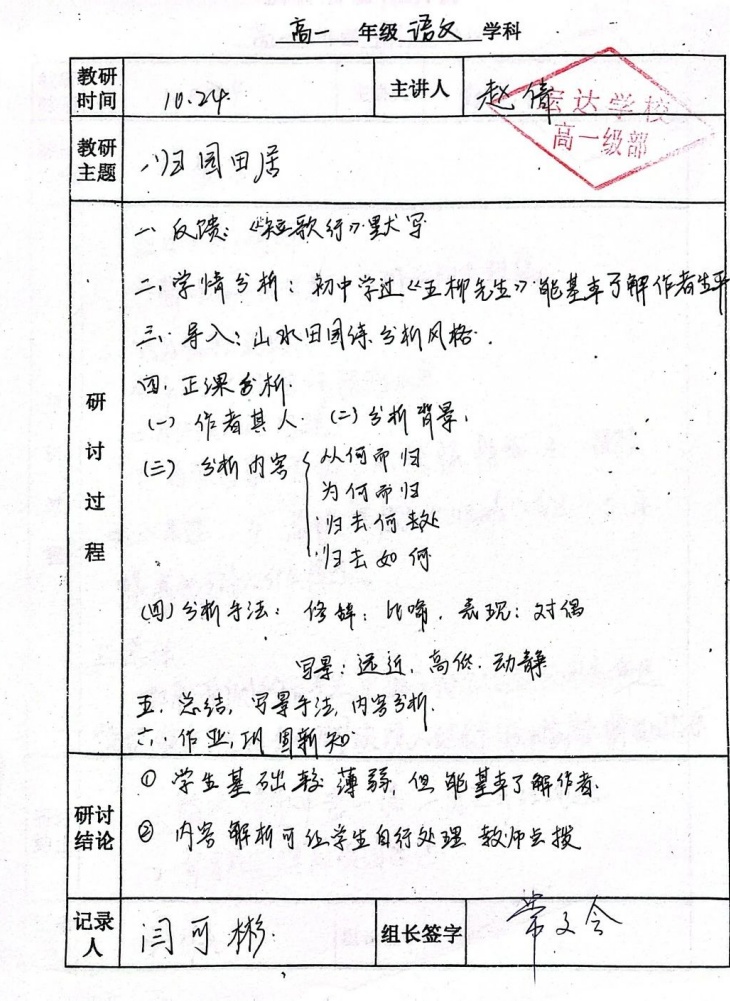 高一 年级 语文 学科
教研时间 10.24. 主讲人 赵倩
宏达学校
高一级部
教研主题 归园田居
研讨过程
一、反馈：《短歌行》默写
二、学情分析：初中学过《五柳先生》能基本了解作者生平
三、导入：山水田园诗分析风格.
四、正课分析.
(一) 作者其人. (二) 分析背景.
(三) 分析内容 { 从何而归
为何而归
归去何处
归去如何
(四) 分析手法： 修辞：比喻. 表现：对偶
写景：远近、高低. 动静
五、总结, 写景手法, 内容分析.
六、作业, 巩固新知
研讨结论
① 学生基础较薄弱, 但能基本了解作者.
② 内容解析可让学生自行处理 教师点拨
记录人 闫可彬. 组长签字 常文会